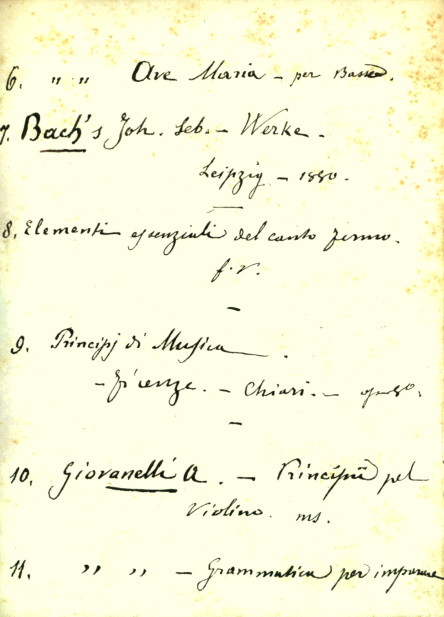 6. " " Ave Maria – per Basso.
7. Bach's Joh. Seb. – Werke –
Leipzig – 1880.
8. Elementi essenziali del canto fermo.
f. v.
9. Principj di Musica.
– Firenze. – Chiari. –
10. Giovanelli A. – Principii pel
Violino. ms.
11. " " – Grammatica per imparare